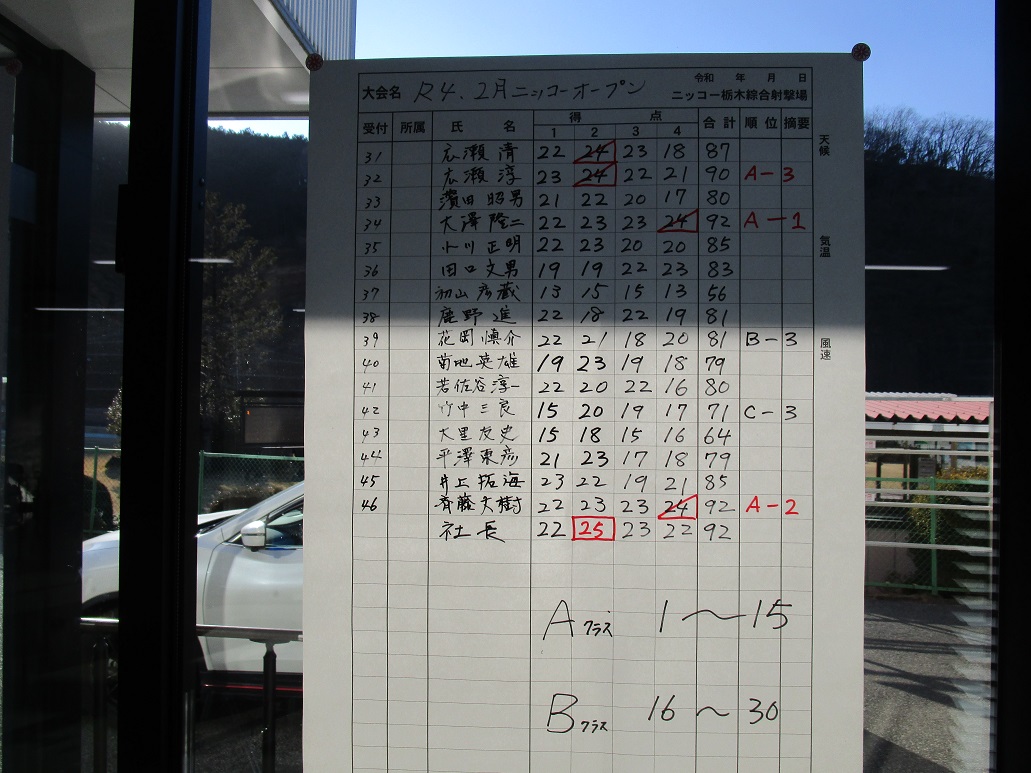 令和 年 月 日
大会名 R4.2月ニッコーオープン ニッコー栃木綜合射撃場
受付 所属 氏名 得点 合計 順位 摘要
1 2 3 4
天候
31 広瀬 清 22 24 23 18 87
32 広瀬 淳 23 24 22 21 90 A-3
33 濱田 昭男 21 22 20 17 80
34 大澤 隆二 22 23 23 24 92 A-1
気温
35 小川 正明 22 23 20 20 85
36 田口 文男 19 19 22 23 83
37 初山 彦蔵 13 15 15 13 56
38 鹿野 進 22 18 22 19 81
39 花岡 慎介 22 21 18 20 81 B-3
風速
40 菊地 英雄 19 23 19 18 79
41 若佐谷 淳一 22 20 22 16 80
42 竹中 三良 15 20 19 17 71 C-3
43 大里 友史 15 18 15 16 64
44 平澤 東彦 21 23 17 18 79
45 井上 拓海 23 22 19 21 85
46 斉藤 大樹 22 23 23 24 92 A-2
社長 22 25 23 22 92
Aクラス 1〜15
Bクラス 16〜30